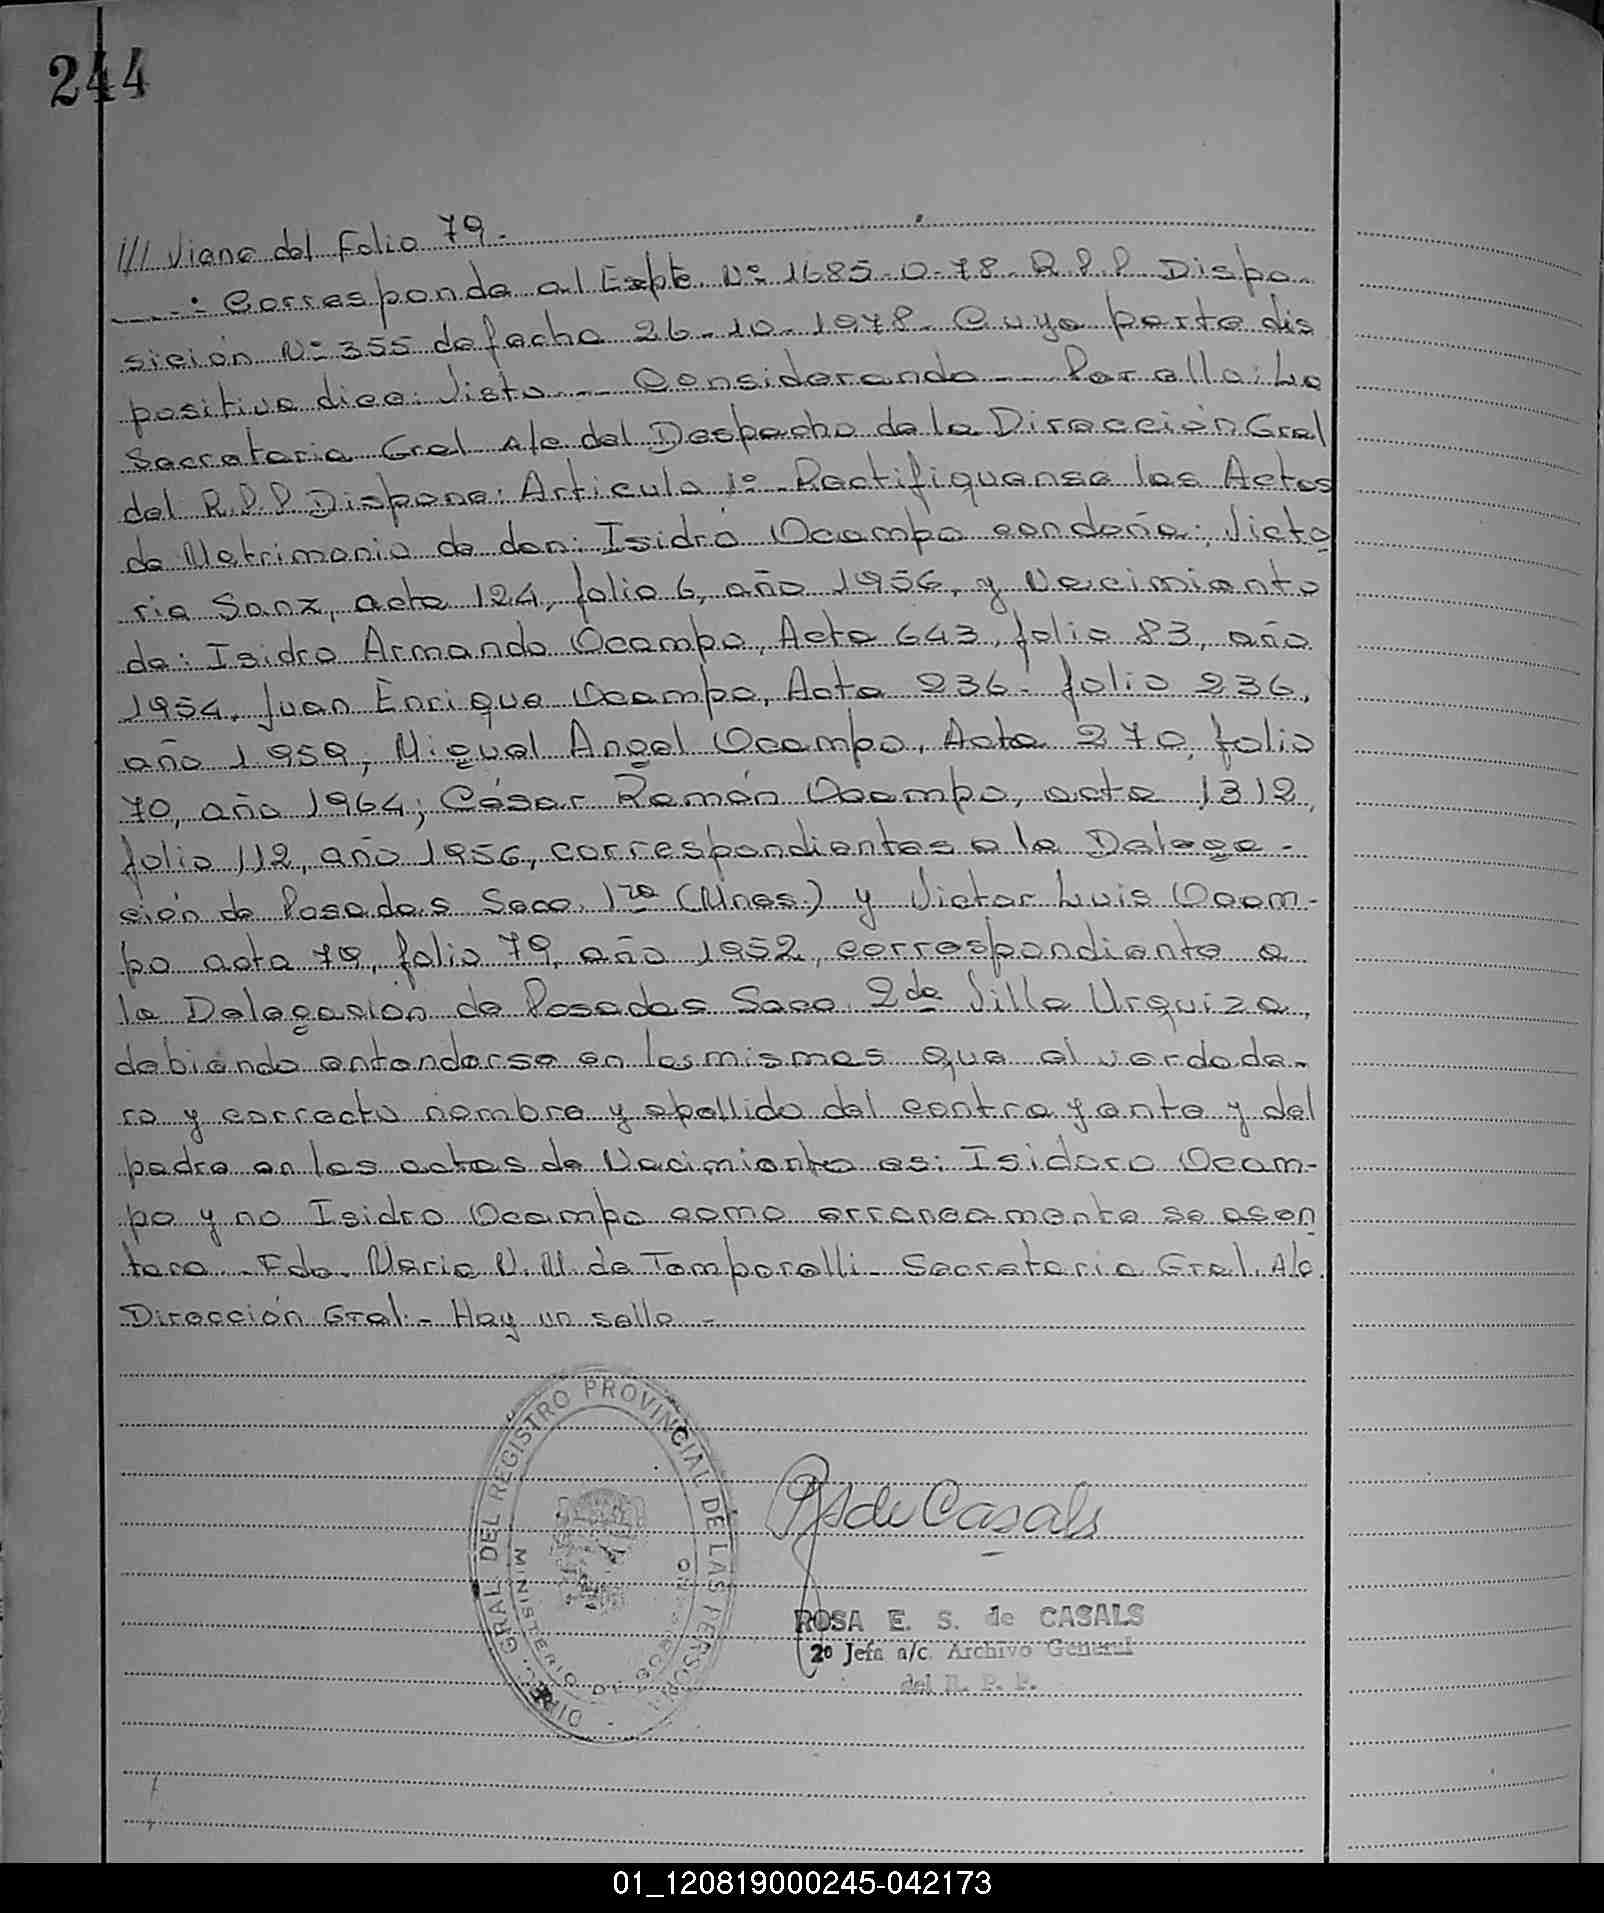 244
/// Viene del Folio 79.-
___: Corresponde al Expte. Nº 1685-O-78-R.P.P. Dispo-
sición Nº 355 de fecha 26-10-1978- Cuya parte dis
positiva dice: Visto --- Considerando --- Por ello: La
Secretaria Gral A/c del Despacho de la Dirección Gral
del R.P.P Dispone: Articulo 1º- Rectifiquense las Actas
de Matrimonio de don: Isidro Ocampo con doña: Victo
ria Sanz, acta 124, folio 6, año 1956, y Nacimiento
de: Isidro Armando Ocampo, Acta 643, folio 83, año
1954, Juan Enrique Ocampo, Acta 236- folio 236,
año 1959, Miguel Angel Ocampo, Acta 270, folio
70, año 1964; César Ramón Ocampo, acta 1312,
folio 112, año 1956, correspondientes a la Delega-
ción de Posadas Secc. 1ra (Mnes.) y Victor Luis Ocam-
po acta 79, folio 79, año 1952, correspondiente a
la Delegasión de Posadas Secc. 2da Villa Urquiza,
debiendo entenderse en las mismas que el verdade-
ro y correcto nombre y apellido del contrayente y del
padre en las actas de Nacimiento es: Isidoro Ocam-
po y no Isidro Ocampo como erroneamente se asen
tara -Fdo. Maria N. M. de Temporelli- Secretaria Gral. A/c.
Dirección Gral.- Hay un sello -
DIREC. GRAL. DEL REGISTRO PROVINCIAL DE LAS PERSONAS
MINISTERIO DE GOBIERNO
RS de Casals
ROSA E. S. de CASALS
2º Jefa a/c. Archivo General
del R. P. P.
01_120819000245-042173